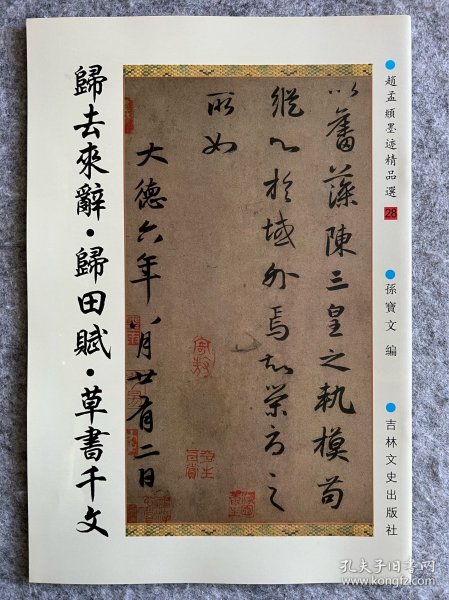 趙孟頫墨迹精品選 28
孫寶文 編
吉林文史出版社
以奮藻陳三皇之軌模苟
縱心於域外焉知榮辱之
所如
大德六年八月廿有二日
歸去來辭・歸田賦・草書千文
孔夫子旧书网
www.kongfz.com